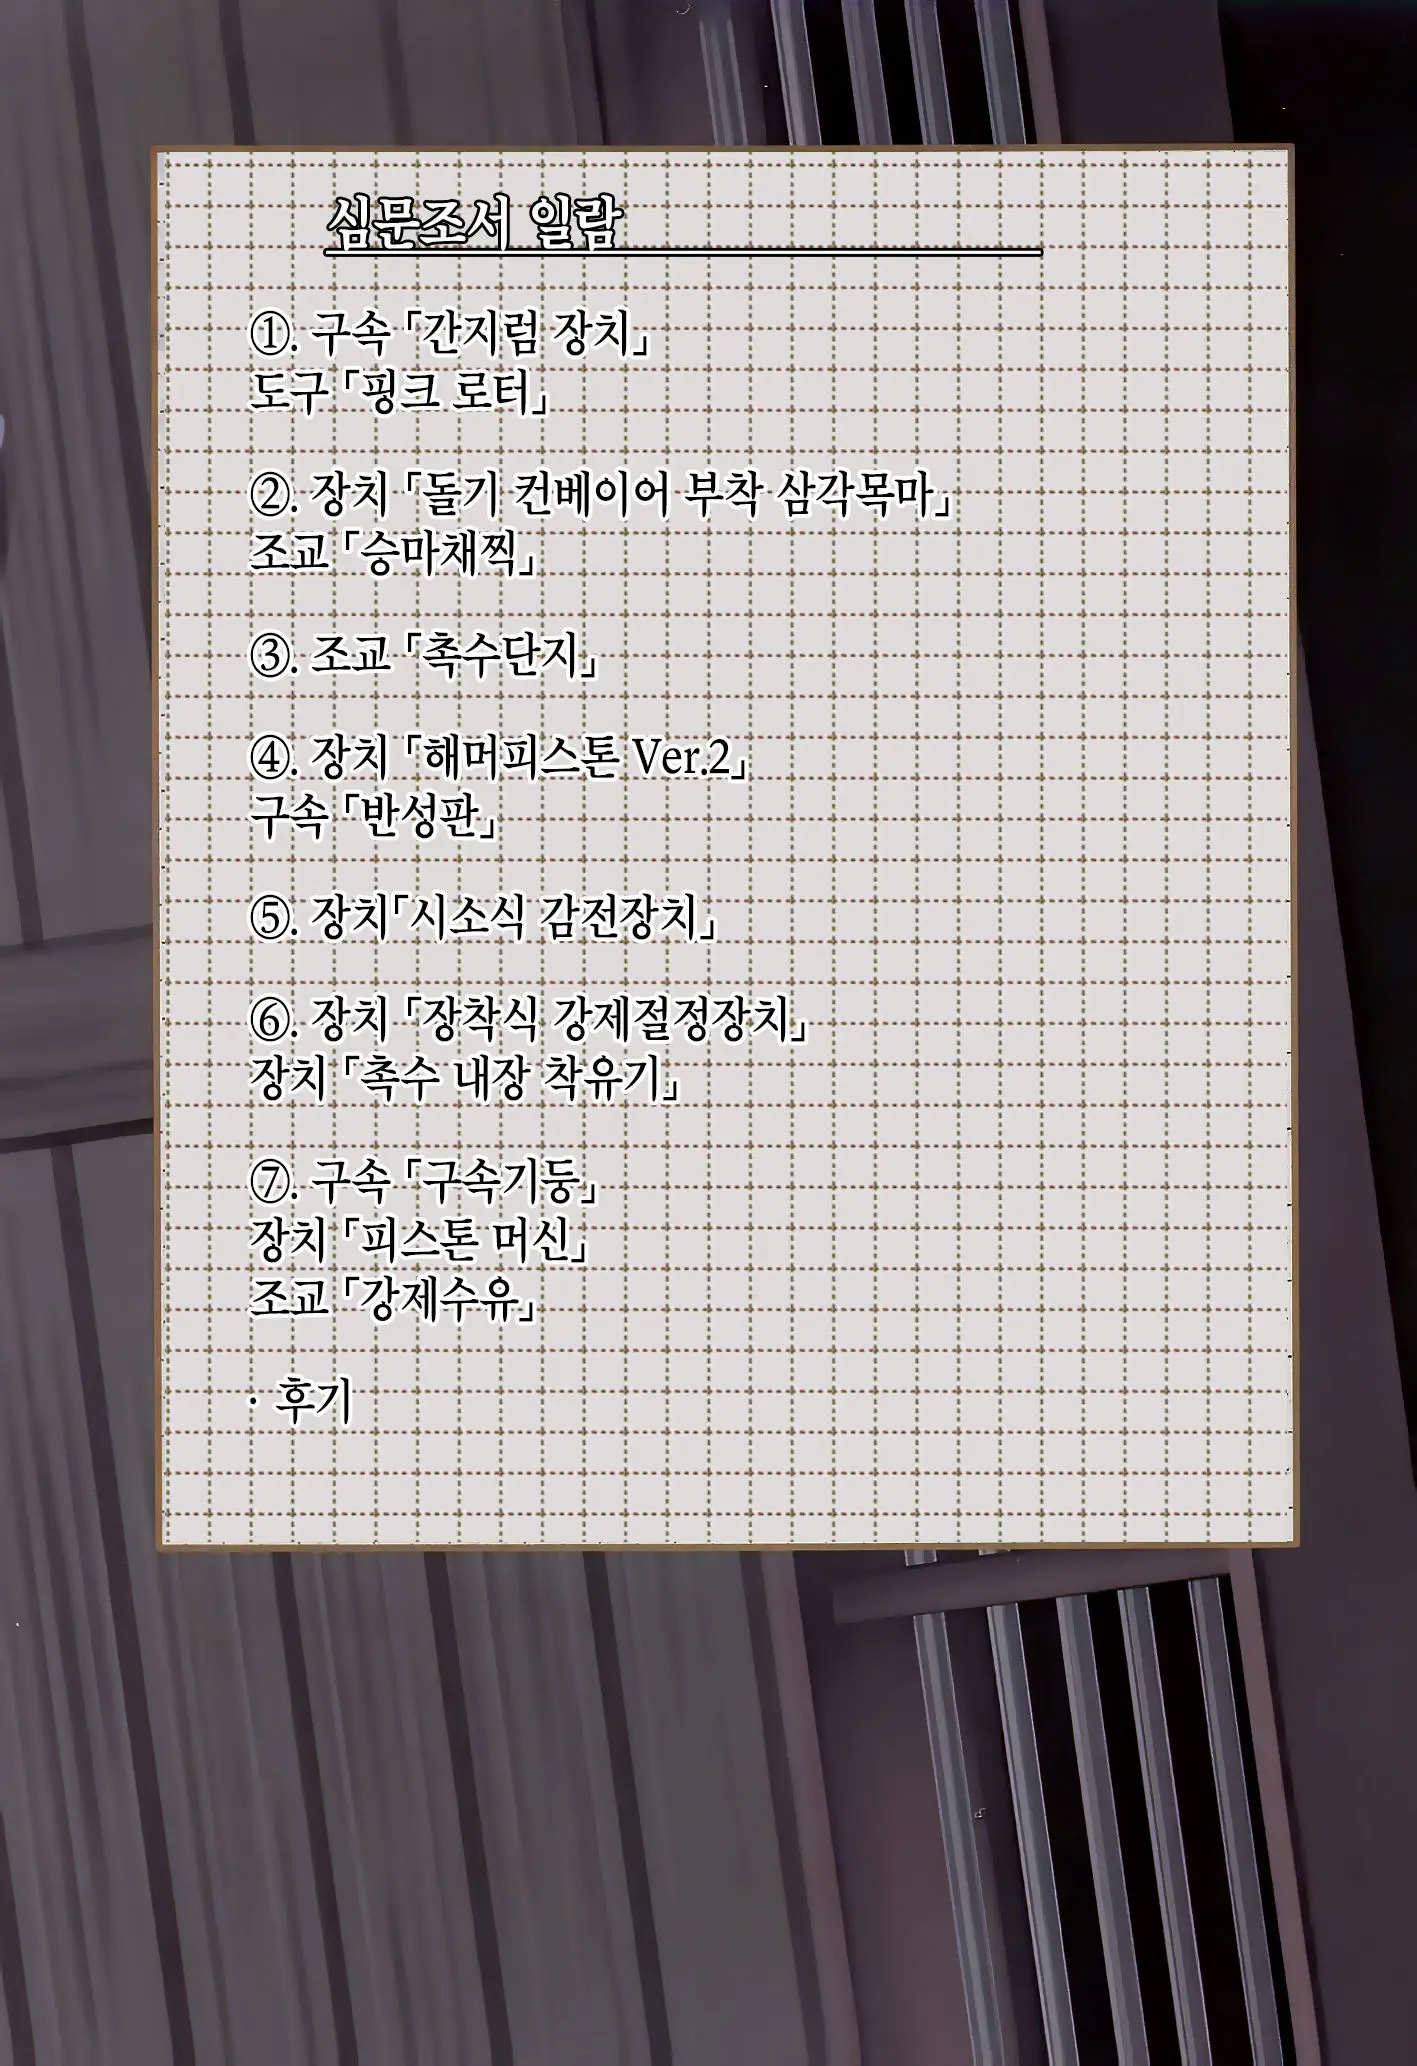 심문조서 일람
①. 구속 「간지럼 장치」
도구 「핑크 로터」
②. 장치 「돌기 컨베이어 부착 삼각목마」
조교 「승마채찍」
③. 조교 「촉수단지」
④. 장치 「해머피스톤 Ver.2」
구속 「반성판」
⑤. 장치「시소식 감전장치」
⑥. 장치 「장착식 강제절정장치」
장치 「촉수 내장 착유기」
⑦. 구속 「구속기둥」
장치 「피스톤 머신」
조교 「강제수유」
· 후기